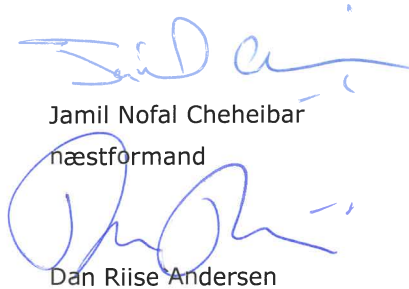 Jamil Nofal Cheheibar
næstformand
Dan Riise Andersen